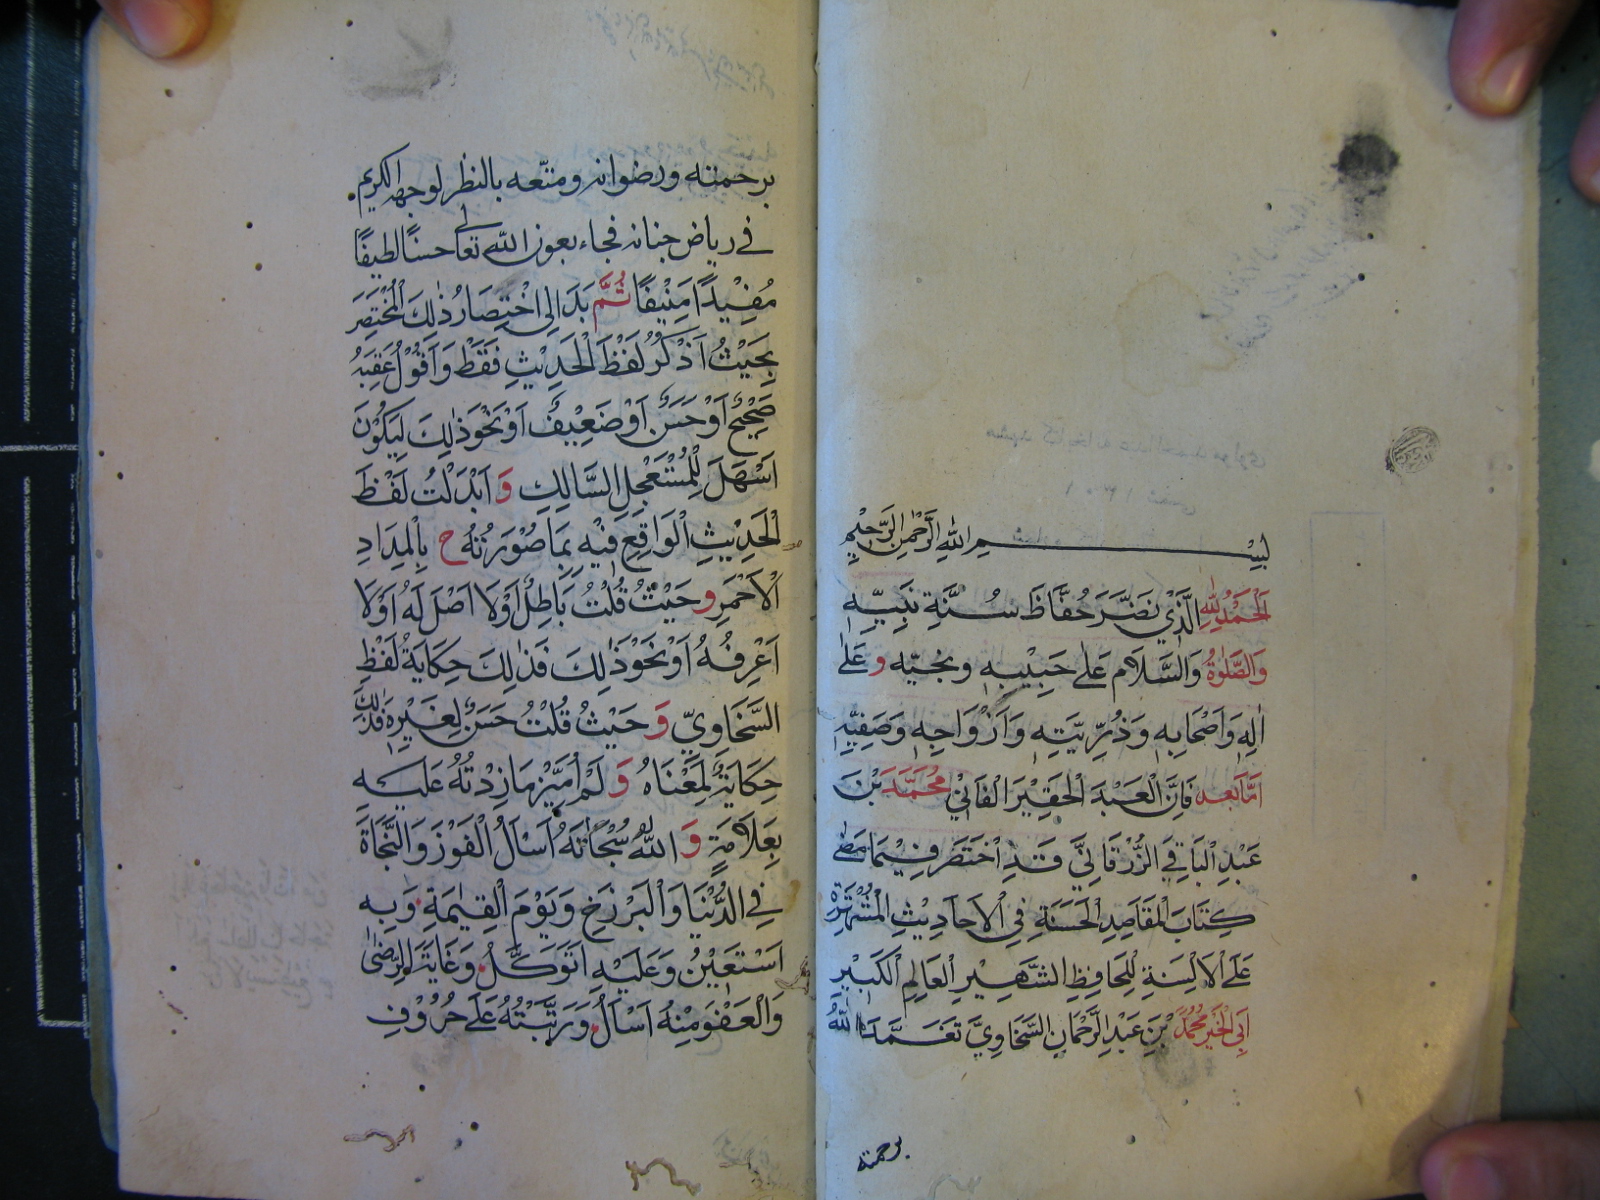 بسم الله الرحمن الرحيم
اَلْحَمْدُ لِلّٰهِ الَّذِي نَضَّرَ حُفَّاظَ سُنَّةِ نَبِيِّهِ
وَالصَّلٰوةُ وَالسَّلَامُ عَلٰى حَبِيْبِهِ ونجيّه و عَلٰى
اٰلِهِ وَاَصْحَابِهِ وَذُرِّيَّتِهِ وَاَزْوَاجِهِ وَصَفِيِّهِ
اَمَّا بَعد فَاِنَّ الْعَبْدَ الْحَقِيْرَ الْفَانِيْ مُحَمَّدَ بْنَ
عَبْدِ الْبَاقِي الزُّرْقَانِيَّ قَدِ اخْتَصَرَ فِيْمَا مَضٰى
كِتَابَ الْمَقَاصِدِ الْحَسَنَةِ فِي الْاَحَادِيْثِ الْمُشْتَهَرَةِ
عَلَى الْاَلْسِنَةِ لِلْحَافِظِ الشَّهِيْرِ الْعَالِمِ الْكَبِيْرِ
اَبِي الْخَيْرِ مُحَمَّدِ بْنِ عَبْدِ الرَّحْمَانِ السَّخَاوِيِّ تَغَمَّدَهُ اللّٰهُ
برحمته
برحمته ورضوانه ومتّعه بالنظر لوجهه الكريم.
في رياض جنانه فجاء بعون اللّه تعالى حسنًا لطيفًا
مُفِيْدًا مَنِيْفًا ثُمَّ بَدَا لِي اخْتِصَارُ ذٰلِكَ الْمُخْتَصَرِ
بِحَيْثُ اَذْكُرُ لَفْظَ الْحَدِيْثِ فَقَطْ وَاَقُوْلُ عَقِبَهُ
صَحِيْحٌ اَوْ حَسَنٌ اَوْ ضَعِيْفٌ اَوْ نَحْوَ ذٰلِكَ لِيَكُوْنَ
اَسْهَلَ لِلْمُسْتَعْجِلِ السَّالِكِ وَ اَبْدَلْتُ لَفْظَ
الْحَدِيْثِ الْوَاقِعِ فِيْهِ بِمَا صُوْرَتُهُ ح بِالْمِدَادِ
الْاَحْمَرِ و حَيْثُ قُلْتُ بَاطِلٌ اَوْ لَا اَصْلَ لَهُ اَوْ لَا
اَعْرِفُهُ اَوْ نَحْوَ ذٰلِكَ فَذٰلِكَ حِكَايَةُ لَفْظِ
السَّخَاوِيِّ وَ حَيْثُ قُلْتُ حَسَنٌ لِغَيْرِهِ فَذٰلِكَ
حِكَايَةٌ لِمَعْنَاهُ وَ لَمْ اُمَيِّزْ مَا زِدْتُهُ عَلَيْهِ
بِعَلَامَةٍ وَ اللّٰهَ سُبْحَانَهُ اَسْاَلُ الْفَوْزَ وَالنَّجَاةَ
فِي الدُّنْيَا وَالْبَرْزَخِ وَيَوْمَ الْقِيٰمَةِ وَبِهِ
اَسْتَعِيْنُ وَعَلَيْهِ اَتَوَكَّلُ وَغَايَةَ الرِّضٰى
وَالْعَفْوَ مِنْهُ اَسْاَلُ وَرَتَّبْتُهُ عَلٰى حُرُوْفِ